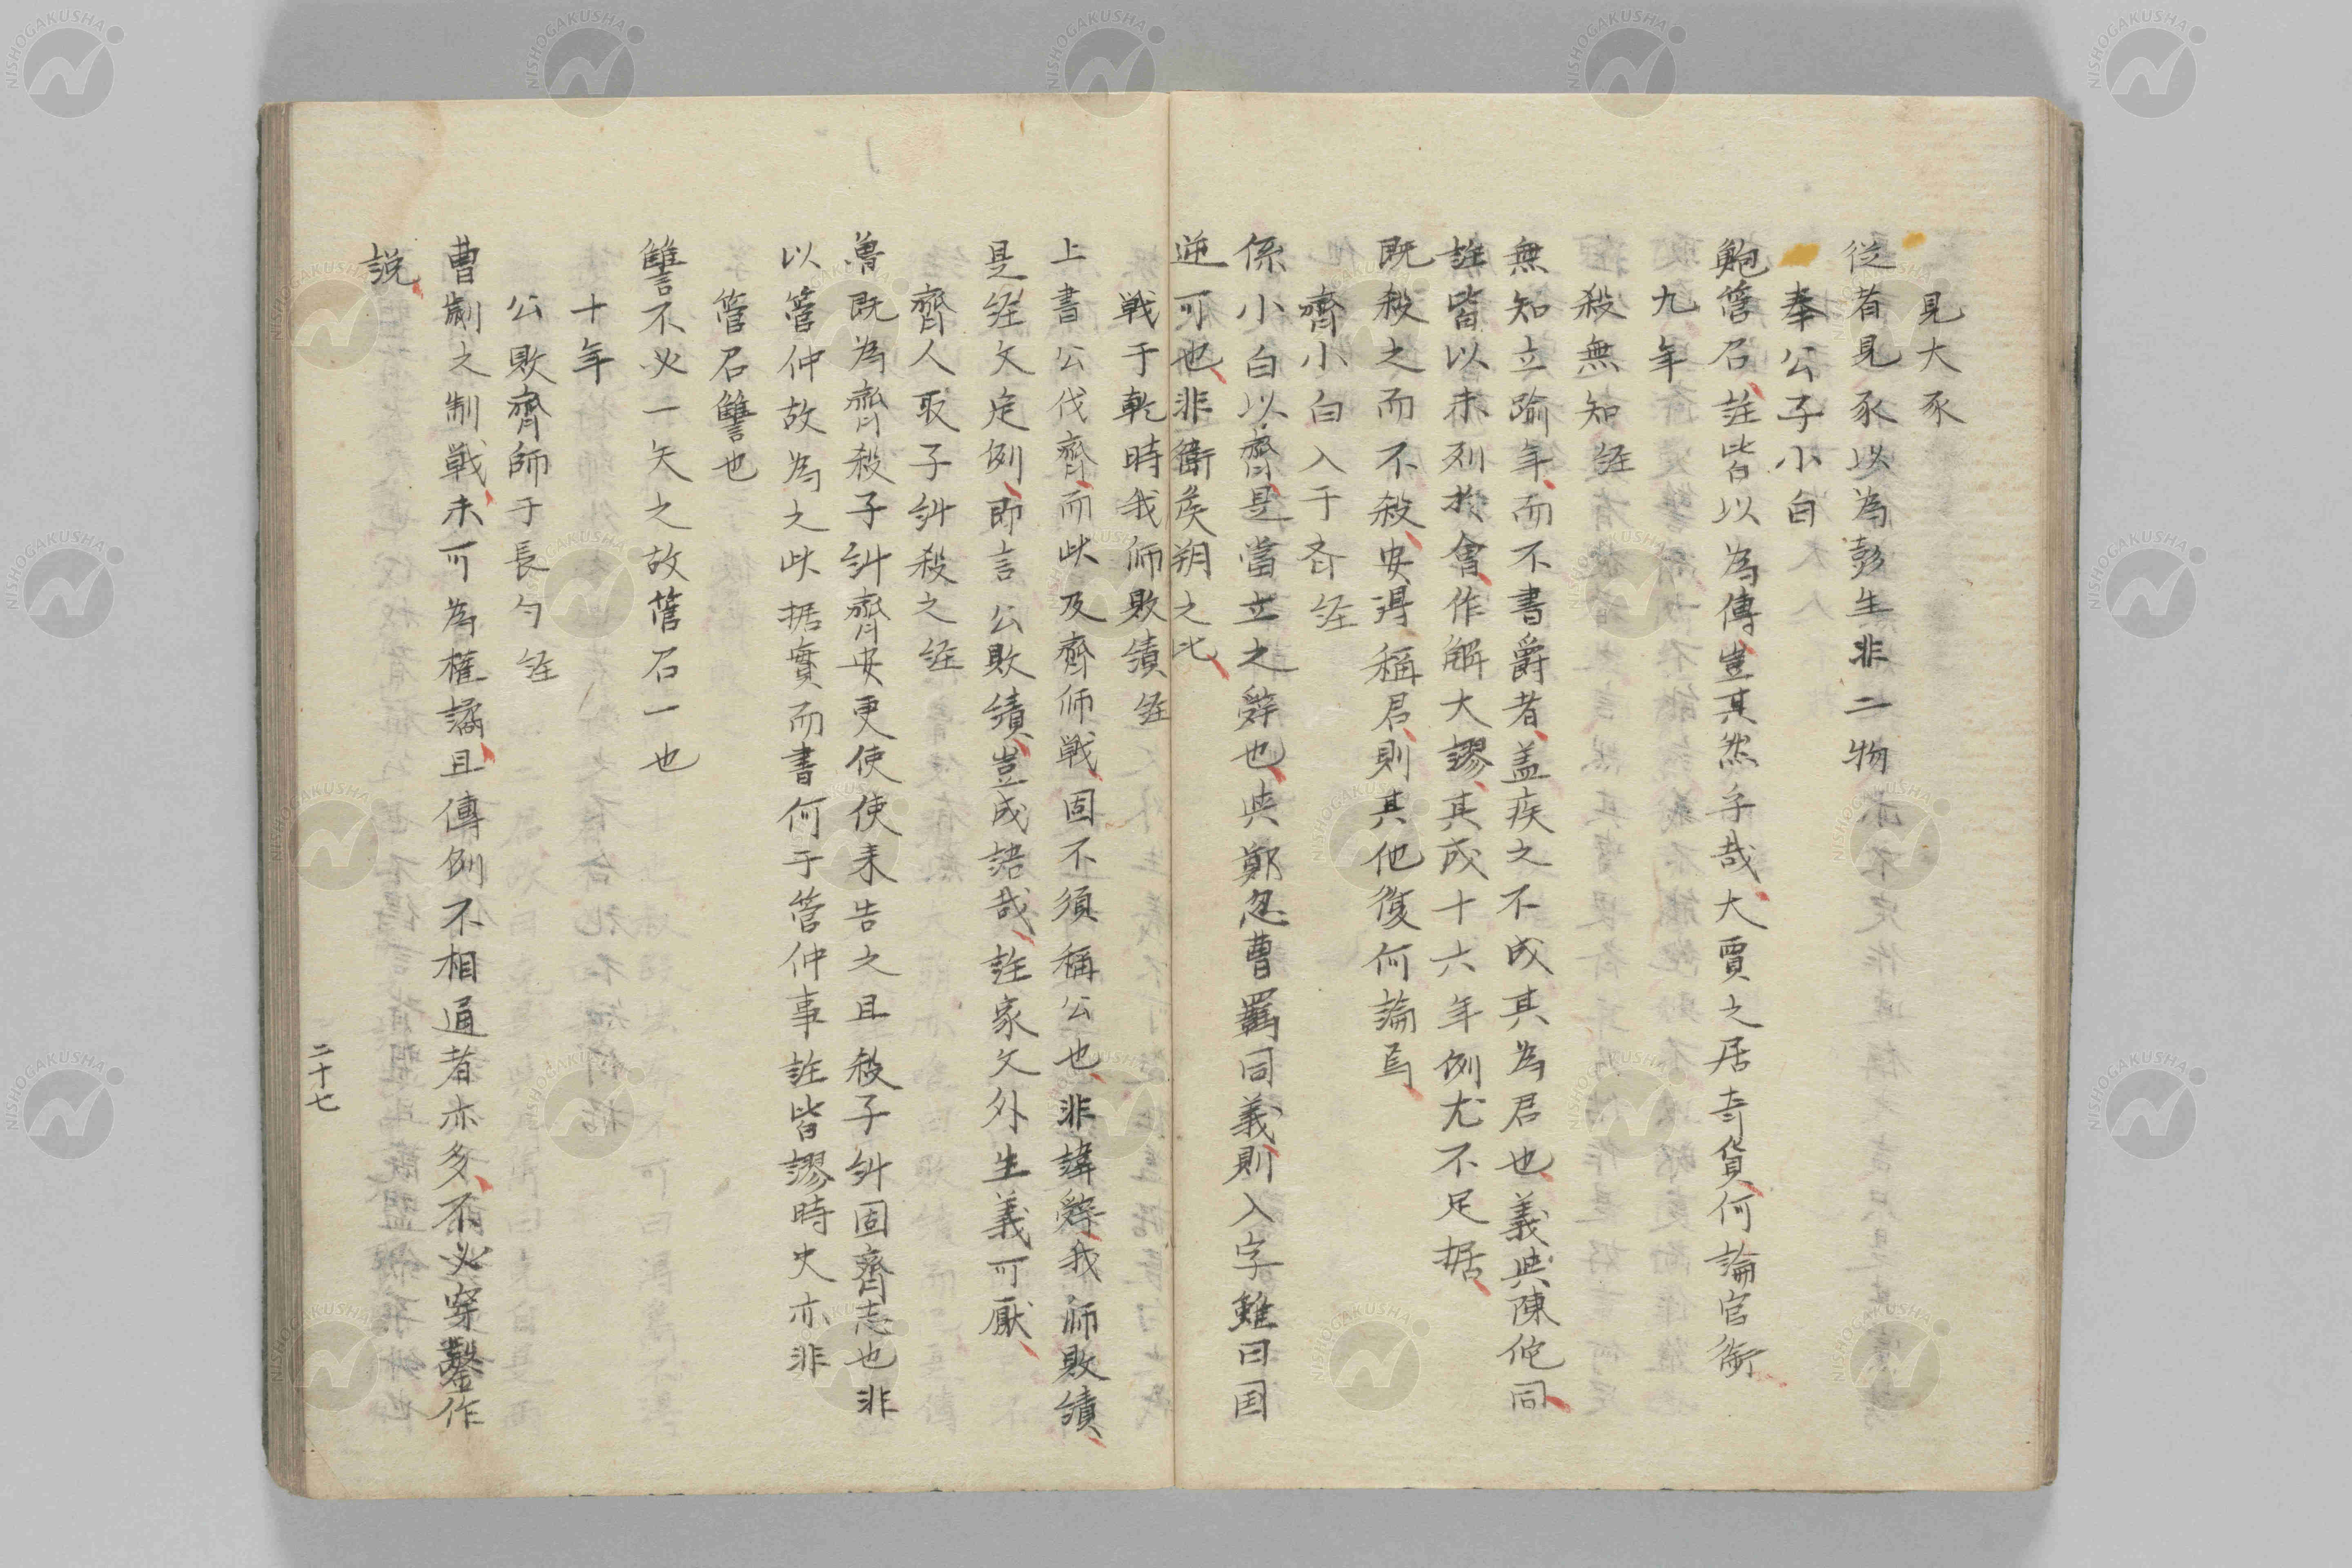 見大豕
従者見豕以為彭生非二物
奉公子小白
鮑管召註皆以為傅豈其然乎哉大賈之居奇貨何論官衛
九年
殺無知経
無知立踰年而不書爵者蓋疾之不成其為君也義与陳佗同
註皆以未列於會作解大謬其成十六年例尤不足据
既殺之而不殺安得稱君則其他復何論焉
齊小白入于斉経
係小白以齊是當立之辞也与鄭忽曹羈同義則入字雖曰国
逆可也非衛侯朔之比
戦于乾時我師敗績経
上書公伐齊而此及齊師戦固不須稱公也非諱辞我師敗績
是経文定例即言公敗績豈成語哉註家文外生義可厭
齊人取子糾殺之経
魯既為齊殺子糾齊安更使使来告之且殺子糾固齊志也非
以管仲故為之此据實而書何于管仲事註皆謬時史亦非
管召讐也
讐不必一矢之故管召一也
十年
公敗齊師于長勺経
曹劌之制戦未可為權譎且傳例不相通者亦多不必穿鑿作
説
二十七
NISHOGAKUSHA